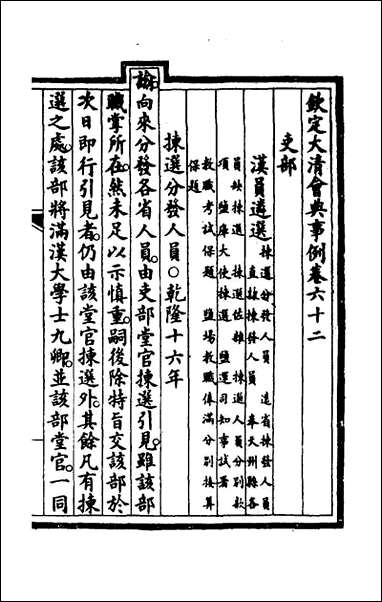 欽定大清會典事例卷六十二
吏部
漢員遴選 揀選分發人員 遠省揀發人員
直隸揀發人員 奉天州縣各
員缺揀選 揀選佐雜 揀選人員分別欵
項 鹽庫大使揀選 鹽運司知事試署
教職考試保題 鹽場教職俸滿分別核算
保題
揀選分發人員○乾隆十六年
諭向來分發各省人員由吏部堂官揀選引見雖該部
職掌所在然未足以示慎重嗣後除特旨交該部於
次日即行引見者仍由該堂官揀選外其餘凡有揀
選之處該部將滿漢大學士九卿並該部堂官一同